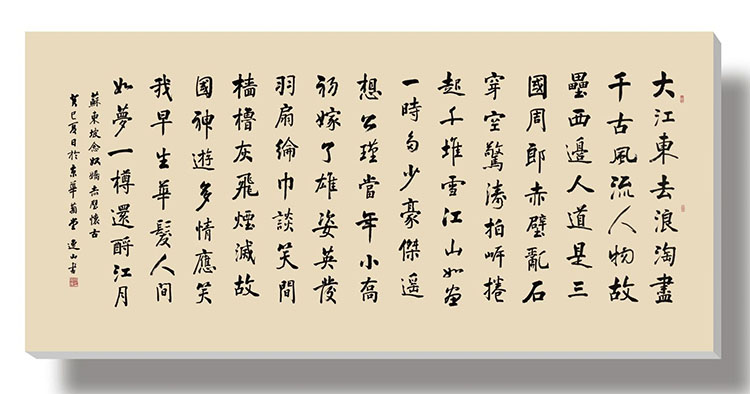 大江東去浪淘盡
千古風流人物故
壘西邊人道是三
國周郎赤壁亂石
穿空驚濤拍岸捲
起千堆雪江山如畫
一時多少豪傑遙
想公瑾當年小喬
初嫁了雄姿英發
羽扇綸巾談笑間
檣櫓灰飛煙滅故
國神遊多情應笑
我早生華髮人間
如夢一樽還酹江月
蘇東坡念奴嬌赤壁懷古
癸巳夏日於京華堂山書